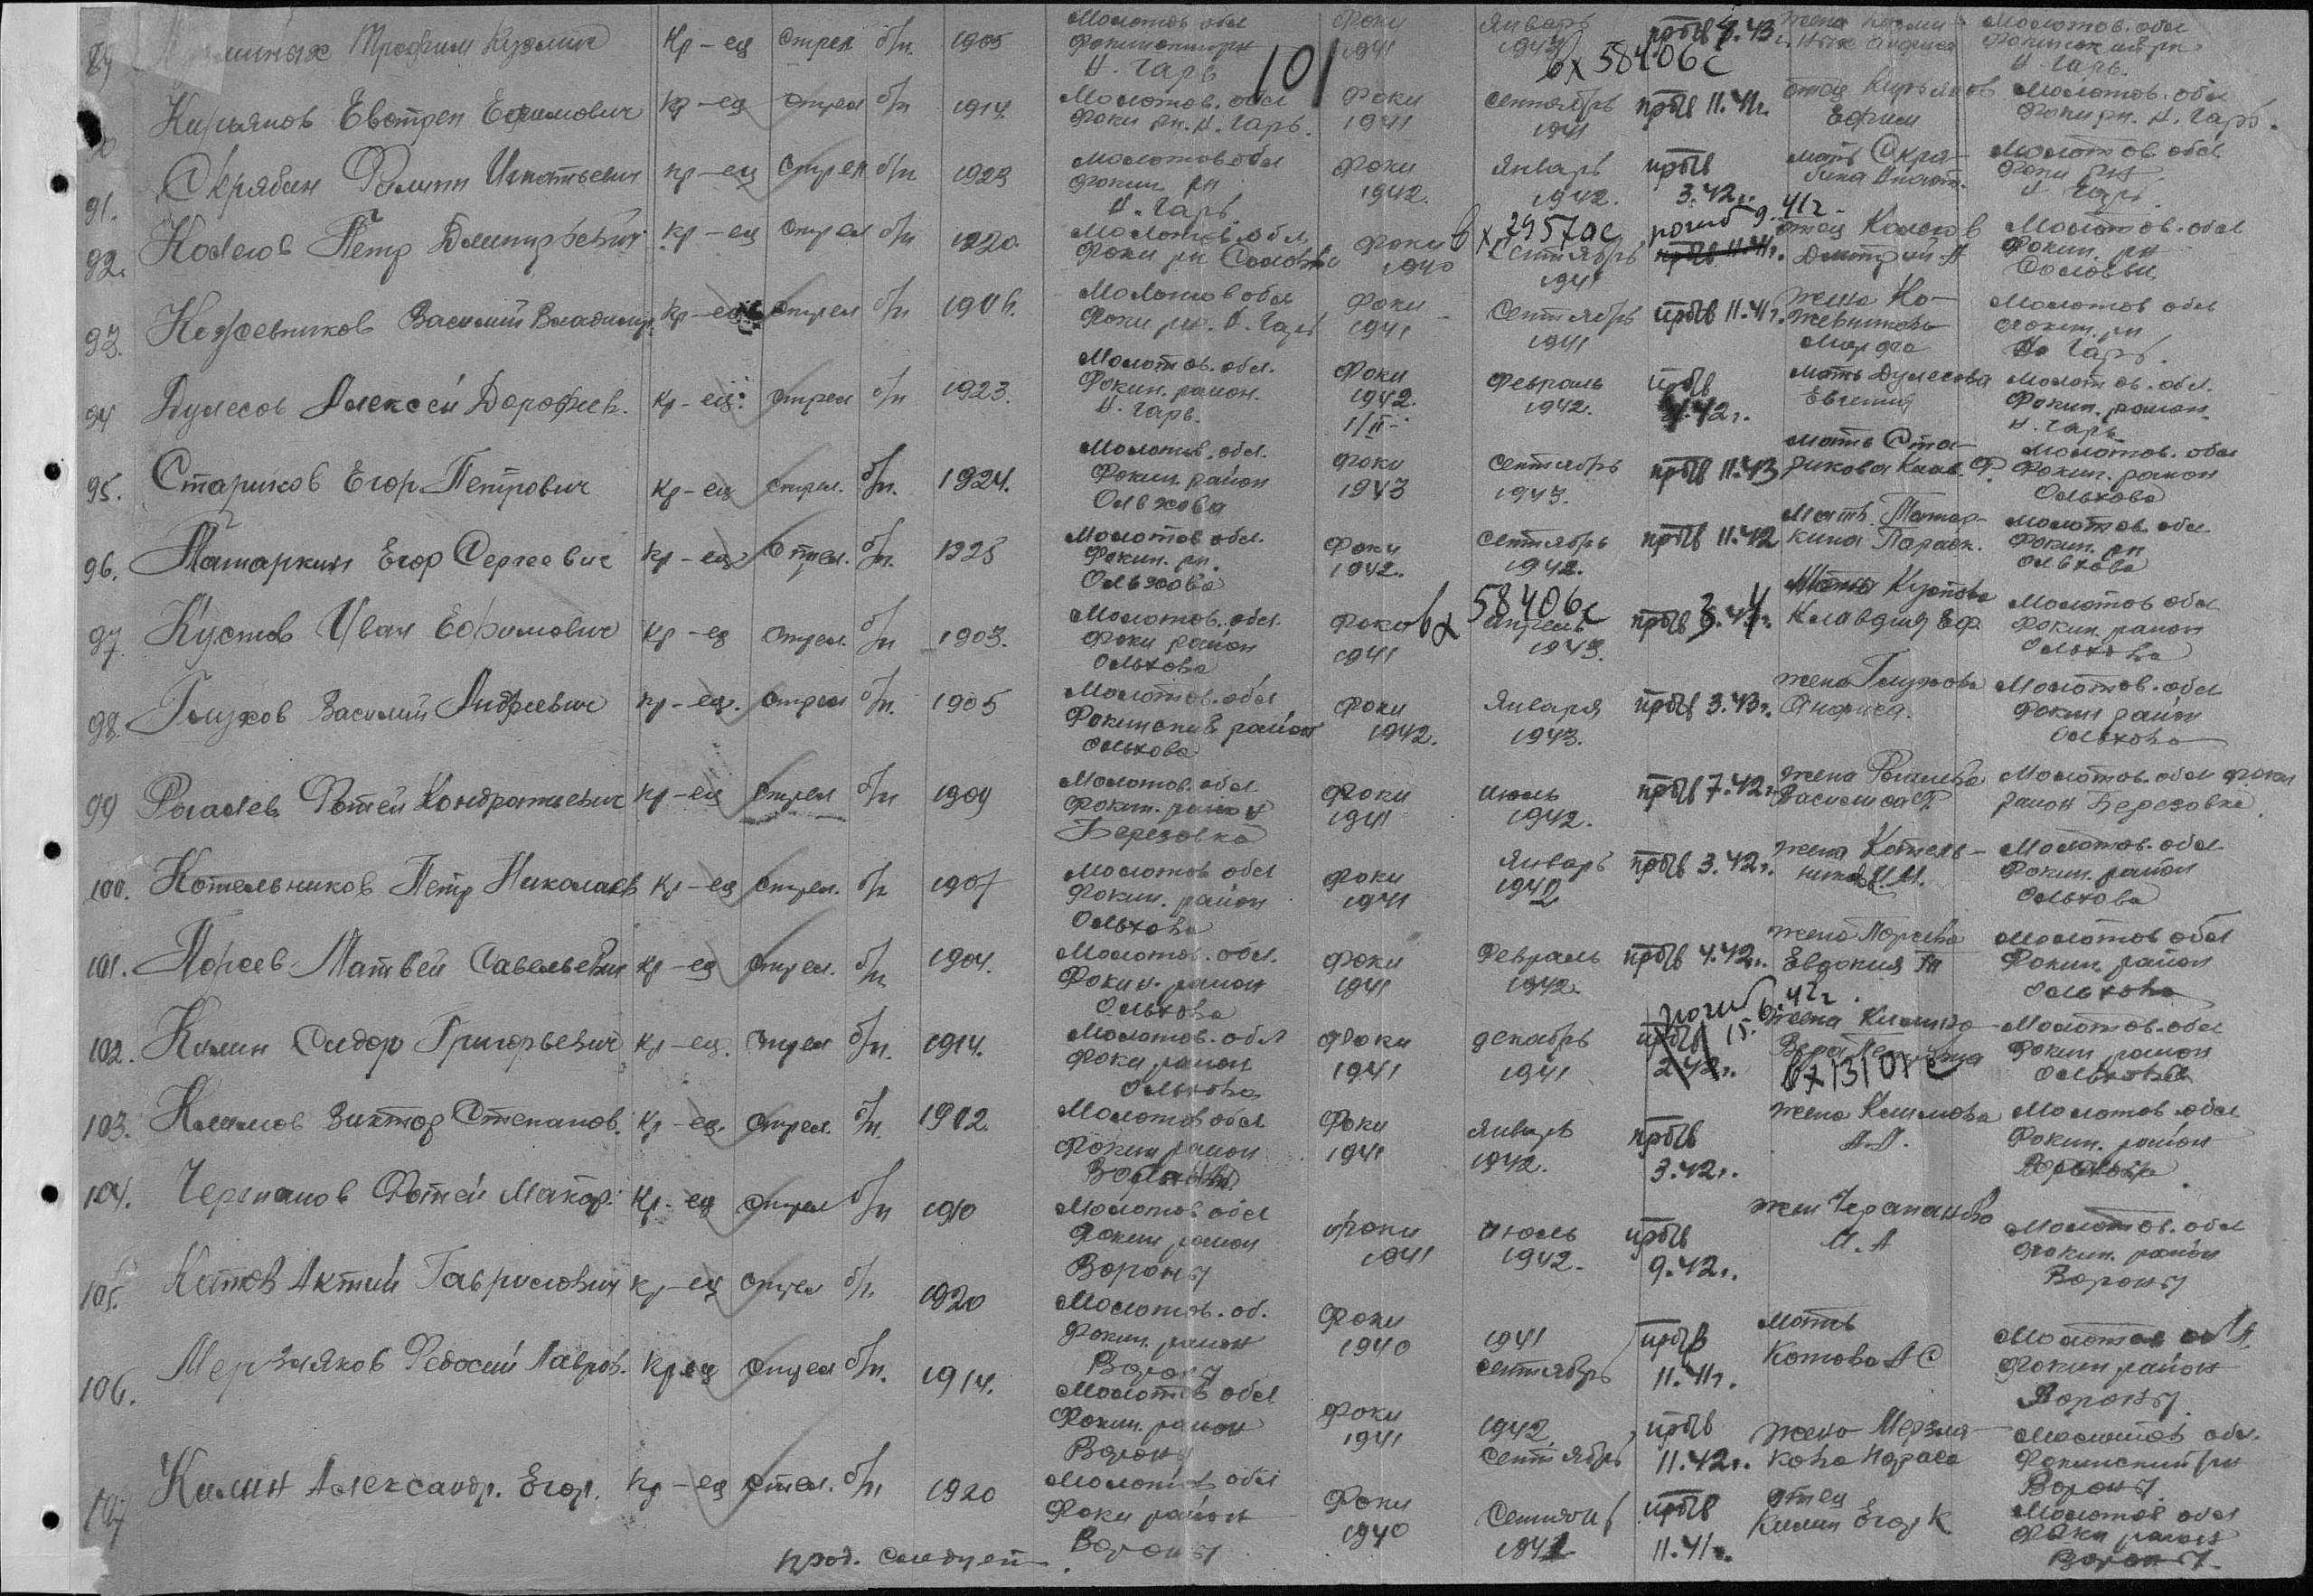 89 Трофим Кузьмич Кр-ец стрел б/п. 1905 Молотов обл Фоки Январь проп 4.43 жена
Фокинский рн 1941 1943 Фокинский рн
Н. Гарь 101 вх 58406с Н. Гарь.
Кирьянов Евстреп Ефимович Кр-ец стрел б/п 1914. Молотов. обл Фоки Сентябрь прбв 11.41г. отец Кирьянов Молотов. обл
Фоки рн. Н. Гарь. 1941 1941 Ефим Фоки рн. Н. Гарь.
91. Скрябин Филипп Игнатьевич Кр-ец стрел б/п 1923 Молотов обл Фоки Январь прбв мать Скря- Молотов обл
Фокин рн 1942. 1942. 3.42г. бина Фоки рн
Н. Гарь. Н Гарь.
92. Колегов Петр Дмитриевич Кр-ец стрел б/п 1920 Молотов. обл. Фоки вх 2957ос погиб 9.41г. отец Колегов Молотов. обл
Фоки рн Соловьи 1940 Сентябрь прбв 11.41г. Дмитрий А Фокин. рн
1941 Соловьи
93. Кожевников Василий Владимир. Кр-ец стрел б/п Молотов обл Фоки Сентябрь прбв 11.41г. жена Ко- Молотов обл
Фоки рн. Н. Гарь 1941 1941 жевникова Фокин. рн
Н Гарь.
94 Дулесов Алексей Дорофеев. Кр-ец. стрел б/п 1923. Молотов. обл. Фоки Февраль прбв мать Дулесова Молотов. обл.
Фокин. район. 1942. 1942. 4.42г. Евгения Фокин. район.
Н. Гарь. 1/II- Н. Гарь
95. Стариков Егор Петрович Кр-ец стрел. б/п. 1924. Молотов. обл. Фоки Сентябрь прбв 11.43 мать Ста- Молотов. обл
Фокин. район 1943 1943. рикова Клав. Ф. Фокин. район
Ольхова Ольхова
96. Татаркин Егор Сергеевич Кр-ец стрел. б/п. 1925 Молотов обл. Фоки Сентябрь прбв 11.42 Мать Татар- Молотов обл.
Фокин. рн. 1942. 1942. кина Параск. Фокин. рн
Ольхова Ольхова
97. Кустов Иван Ефимович Кр-ец стрел. б/п 1903. Молотов. обл. Фоки вх 58406с Апрель прбв Кустова Молотов обл
Фоки район 1941 1943. Клавдия Еф. Фокин. район
Ольхова Ольхова
98. Глухов Василий Андреевич Кр-ец. стрел б/п. 1905 Молотов. обл Фоки Января прбв 3.43г. жена Глухова Молотов. обл
Фокинский район 1942. 1943. Анфиса. Фокин район
Ольхова Ольхова
99 Рогалев Фотей Кондратьевич Кр-ец стрел б/п 1904 Молотов. обл Фоки Июль прбв 7.42г. жена Рогалева Молотов. обл Фокин
Фокин. район 1941 1942. Василиса Ф. район Березовка
Березовка
100. Котельников Петр Николаев Кр-ец стрел. б/п 1907 Молотов обл Фоки Январь прбв 3.42г. жена Котель- Молотов. обл
Фокин. район 1941 1942 никова Фокин. район
Ольхова Ольхова
101. Порсев Матвей Савельевич Кр-ец стрел. б/п 1904. Молотов. обл. Фоки Февраль прбв 4.42г. жена Порсева Молотов обл
Фокин. район 1941 1942. Евдокия Фокин. район
Ольхова Ольхова
102. Килин Сидор Григорьевич Кр-ец. стрел б/п. 1914. Молотов. обл Фоки декабрь погиб 15.6.42г. прбв жена Килина Молотов. обл
Фоки район 1941 1941 2.42г. Вера Фокин район
Ольхова вх 13101с Ольхова
103. Климов Виктор Степанов. Кр-ец. стрел. б/п. 1912. Молотов обл Фоки Январь прбв жена Климова Молотов обл
Фокин район 1941 1942. 3.42г. А.Д. Фокин. район
104. Черепанов Фотей Макар. Кр-ец стрел б/п 1910 Молотов обл Фоки Июль прбв жен Черепанова Молотов. обл
Фокин район 1941 1942. 9.42г. М. А Фокин. район
Вороны Вороны
105. Котов Актий Гаврилович Кр-ец стрел б/п. 1920 Молотов. об. Фоки 1941 прбв мать Молотов обл
Фокин. район 1940 сентябрь 11.41г. Котова А С Фокин район
Вороны Вороны
106. Мерзляков Федосий Лавров. Кр-ец стрел б/п. 1914. Молотов обл Фоки 1942 прбв жена Мерзля- Молотов обл.
Фокин. район 1941 сентябрь 11.42г. кова Фокинский рн
Вороны Вороны
107 Килин Александр. Егор. Кр-ец стрел. б/п 1920 Молотов обл Фоки Сентябрь прбв отец Молотов обл
Фоки район 1940 1941 11.41г. Килин Егор К Фоки район
Вороны Вороны
прод. следует